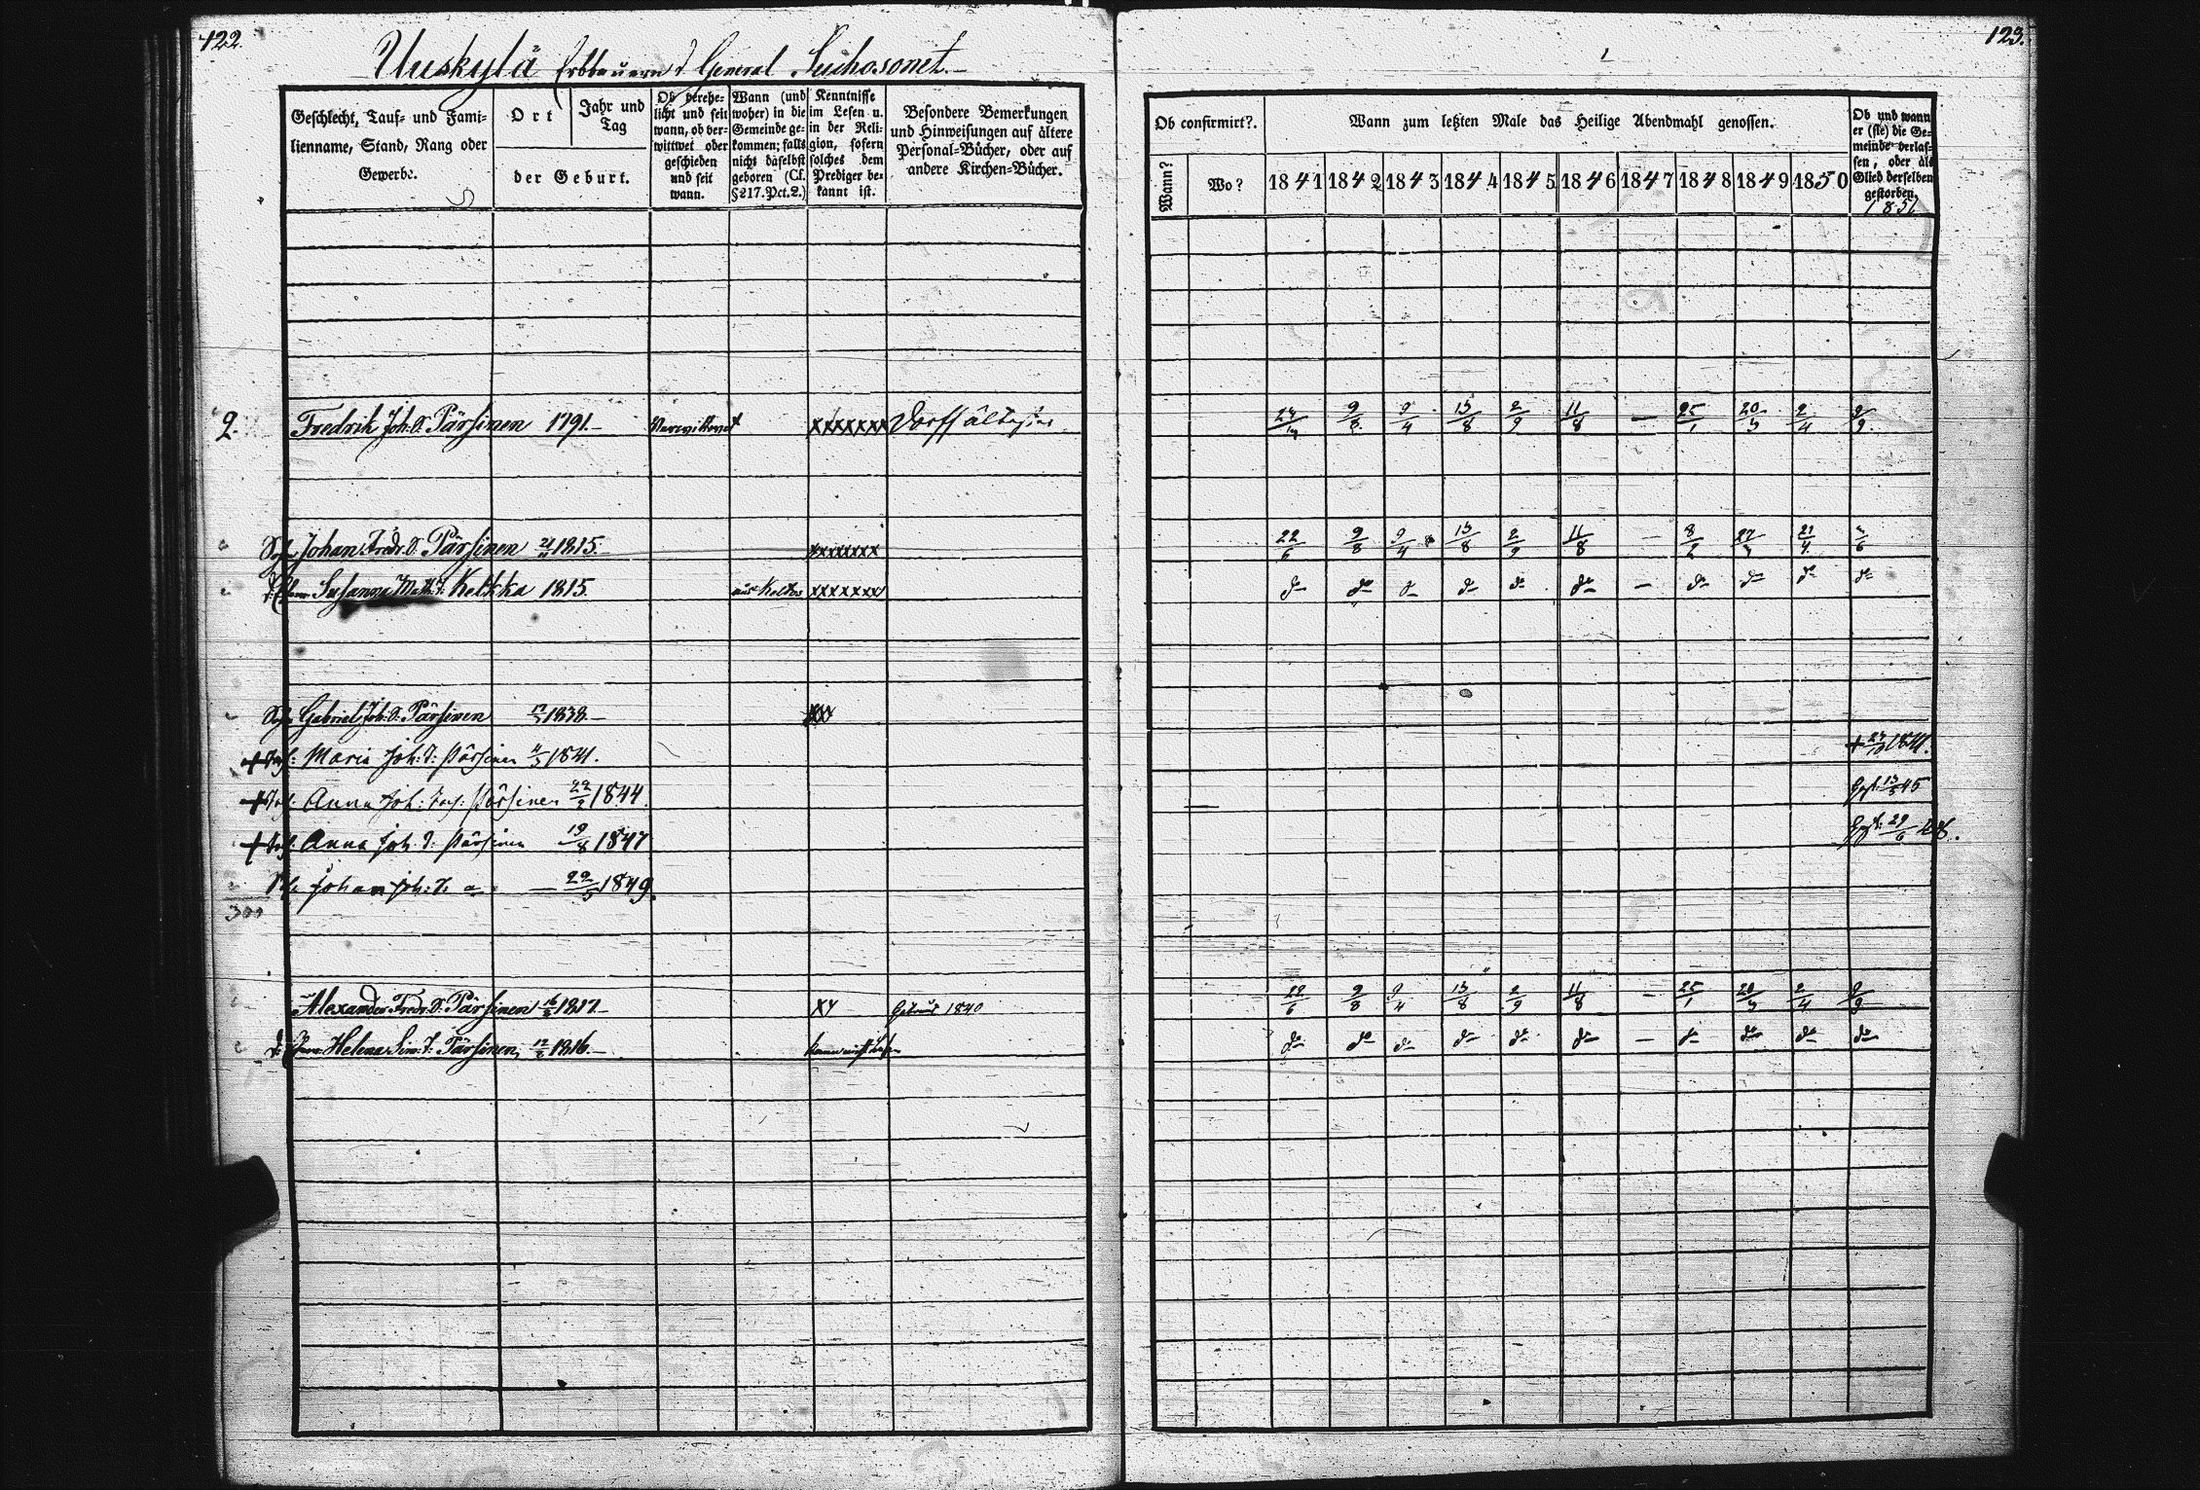 122.
Uuskylä Erbbauern d General Suchosonet.
Geschlecht, Tauf- und Fami-
lienname, Stand, Rang oder
Gewerbe.
Ort
Jahr und
Tag
der Geburt.
Ob verehe-
licht und seit
wann, ob ver-
wittwet oder
geschieden
und seit
wann.
Wann (und
woher) in die
Gemeinde ge-
kommen; falls
nicht daselbst
geboren (Cf.
§ 217. Pct. 2.)
Kenntnisse
im Lesen u.
in der Reli-
gion, sofern
solches dem
Prediger be-
kannt ist.
Besondere Bemerkungen
und Hinweisungen auf ältere
Personal-Bücher, oder auf
andere Kirchen-Bücher.
2. Fredrik Joh. S. Pärsinen 1791.— Verwittwet xxxxxxx Dorfsältester
Sohn Johan Fredr. S. Pärsinen 1815.— xxxxxxx
Susanna Math. T. Kekka 1815. aus xxxxxxx
Gabriel Joh. S. Pärsinen 1838.—
+ Maria Joh: T: Pärsinen 1841.
+ Anna Joh: Pärsinen 22/2 1844.
+ Anna Joh. T: Pärsinen 19/8 1847
Johan Joh: — 22/5 1849.
300
Alexander Fredr. S. Pärsinen 16/ 1817.— xx 1840
Helena Sim: T: Pärsinen 12/2 1816.— kann nicht lesen
123.
Ob confirmirt?.
Wann?
Wo?
Wann zum letzten Male das Heilige Abendmahl genossen.
1841 1842 1843 1844 1845 1846 1847 1848 1849 1850
Ob und wann
er (sie) die Ge-
meinde verlas-
sen, oder als
Glied derselben
gestorben.
1851
9/8 9/4 13/8 2/9 11/8 — 25/1 20/3 2/4 9/9
22/6 9/8 9/4 13/8 2/9 11/8 — 8/2 27/3 21/4
do do do do do do — do do do do
+ 1841.
Gest. 45
Gest. 29/6
22/6 9/8 9/4 13/8 2/9 11/8 — 25/1 20/3 2/4 9/9
do do do do do do — do do do do